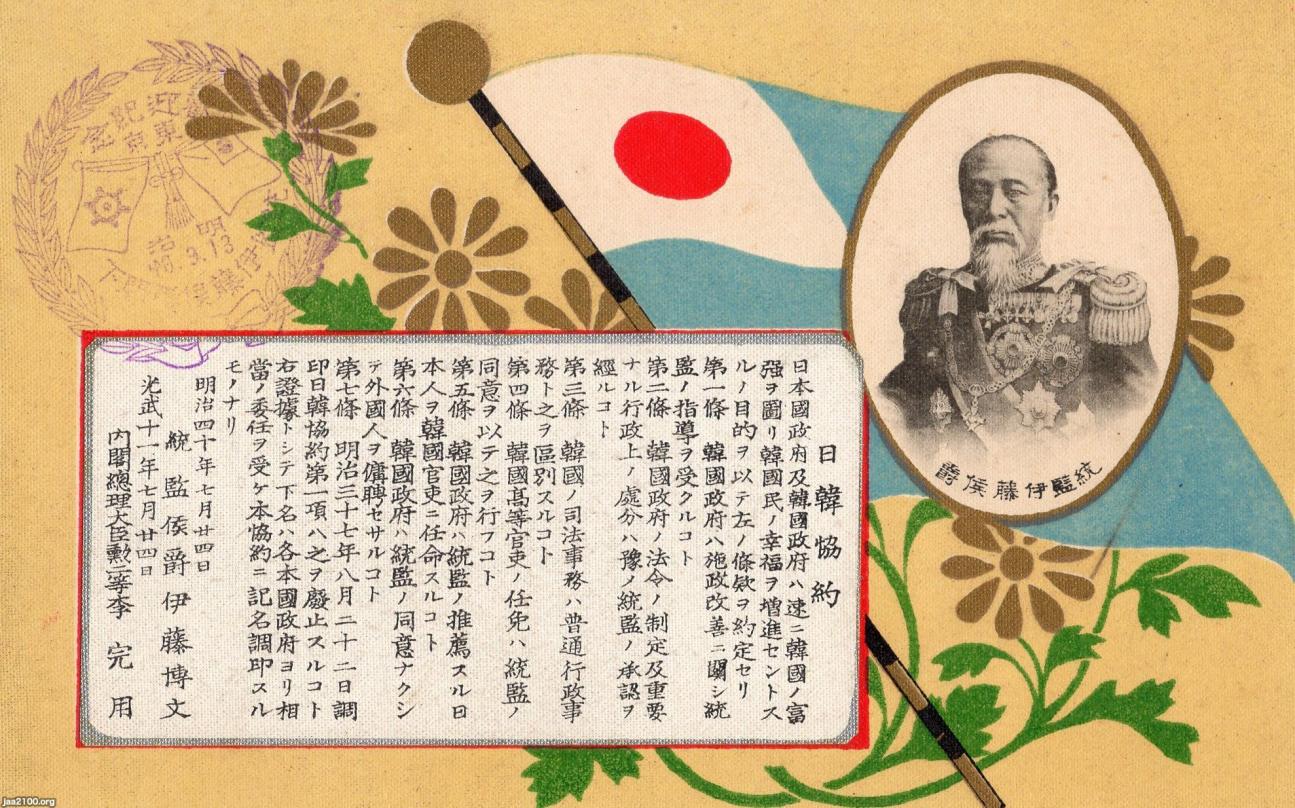 日韓協約
日本國政府及韓國政府ハ速ニ韓國ノ富
强ヲ圖リ韓國民ノ幸福ヲ増進セントス
ルノ目的ヲ以テ左ノ條欵ヲ約定セリ
第一條 韓國政府ハ施政改善ニ關シ統
監ノ指導ヲ受クルコト
第二條 韓國政府ノ法令ノ制定及重要
ナル行政上ノ處分ハ豫メ統監ノ承認ヲ
經ルコト
第三條 韓國ノ司法事務ハ普通行政事
務ト之ヲ區別スルコト
第四條 韓國高等官吏ノ任免ハ統監ノ
同意ヲ以テ之ヲ行フコト
第五條 韓國政府ハ統監ノ推薦スル日
本人ヲ韓國官吏ニ任命スルコト
第六條 韓國政府ハ統監ノ同意ナクシ
テ外國人ヲ傭聘セサルコト
第七條 明治三十七年八月二十二日調
印日韓協約第一項ハ之ヲ廢止スルコト
右證據トシテ下名ハ各本國政府ヨリ相
當ノ委任ヲ受ケ本協約ニ記名調印スル
モノナリ
明治四十年七月廿四日
統監侯爵伊藤博文
光武十一年七月廿四日
內閣總理大臣勲二等李完用
統監伊藤侯爵
迎紀念
東京
明治
40.3.13
jaa2100.org